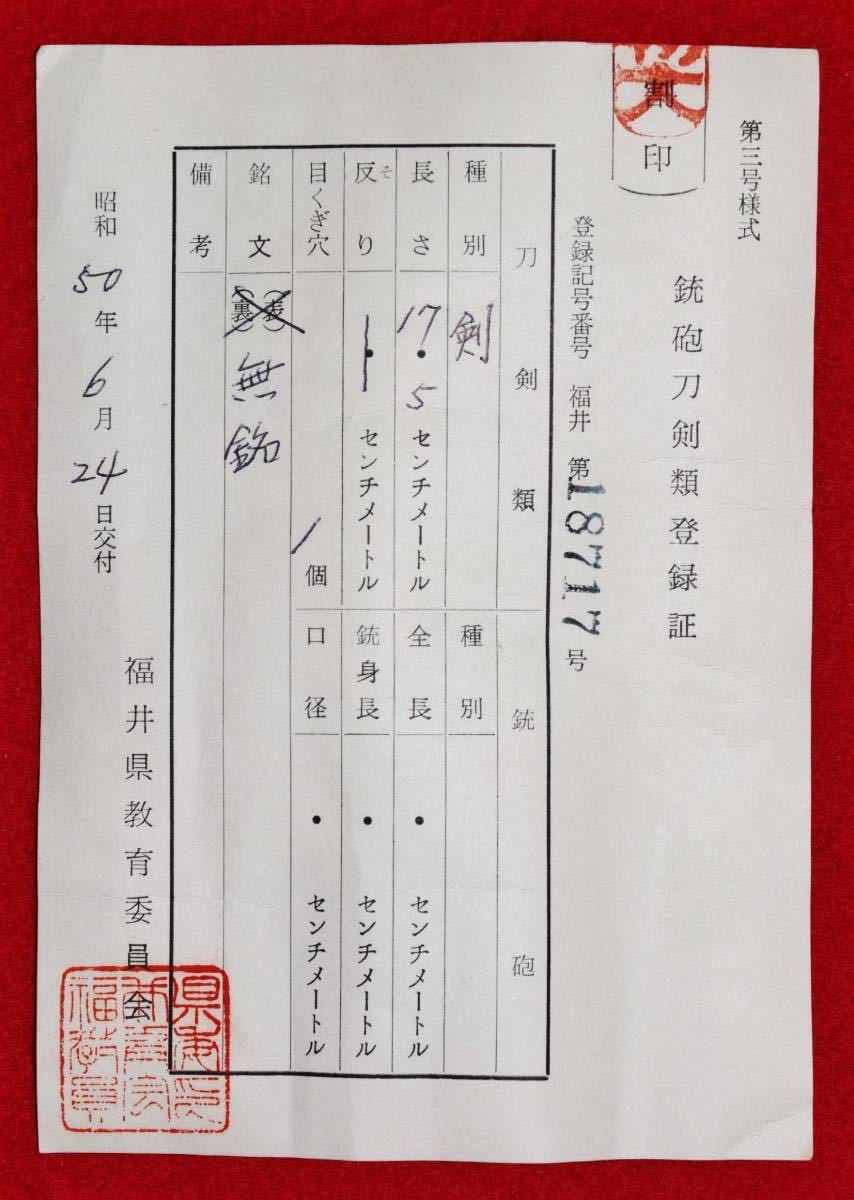 第三号様式
割印
銃砲刀剣類登録証
登録記号番号 福井 第18717号
刀剣類
種別 剣
長さ 17.5センチメートル
反り そ ・ センチメートル
目くぎ穴 1個
銘文 (表) (裏) 無銘
備考
銃砲
種別
全長 ・ センチメートル
銃身長 ・ センチメートル
口径 ・ センチメートル
昭和50年6月24日交付
福井県教育委員会